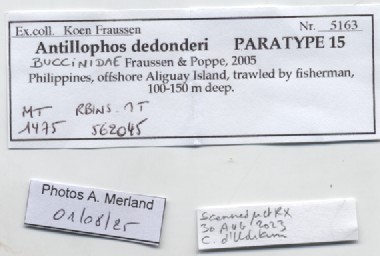 Ex.coll. Koen Fraussen Nr. 5163
Antillophos dedonderi PARATYPE 15
BUCCINIDAE Fraussen & Poppe, 2005
Philippines, offshore Aliguay Island, trawled by fisherman,
100-150 m deep.
MT RBINS. MT
1475 562045
Photos A. Merland
01/08/25
Scanned µCT RX
30 Aug 2023
C. d'Udekem